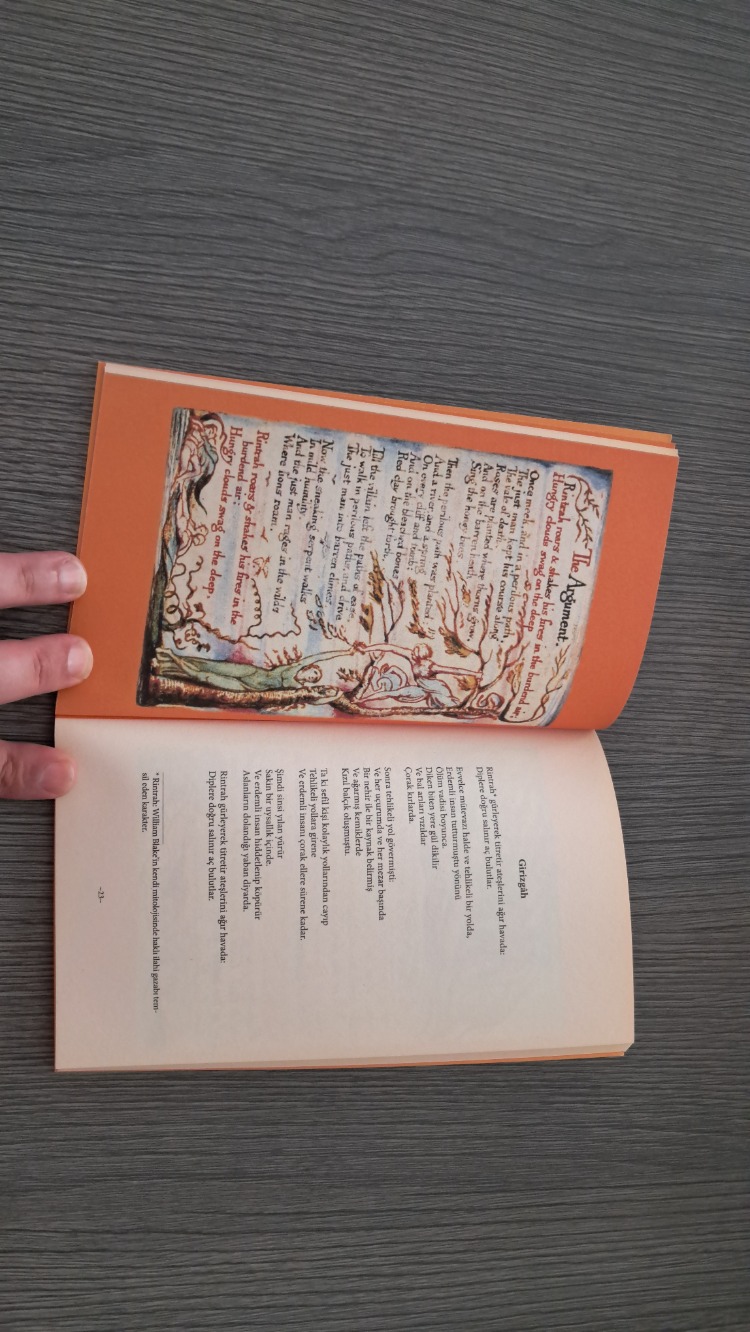 The Argument.
Rintrah roars & shakes his fires in the burdend air;
Hungry clouds swag on the deep
Once meek, and in a perilous path,
The just man kept his course along
The vale of death.
Roses are planted where thorns grow.
And on the barren heath
Sing the honey bees.
Then the perilous path was planted:
And a river, and a spring
On every cliff and tomb;
And on the bleached bones
Red clay brought forth.
Till the villain left the paths of ease,
To walk in perilous paths, and drive
The just man into barren climes.
Now the sneaking serpent walks
In mild humility.
And the just man rages in the wilds
Where lions roam.
Rintrah roars & shakes his fires in the
burdend air;
Hungry clouds swag on the deep.
Girizgâh
Rintrah* gürleyerek titretir ateşlerini ağır havada:
Diplere doğru salınır aç bulutlar.
Evvelce mütevazı halde ve tehlikeli bir yolda,
Erdemli insan tutturmuştu yönünü
Ölüm vadisi boyunca.
Diken biten yere gül dikilir
Ve bal arıları vızıldar
Çorak kırlarda.
Sonra tehlikeli yol göverrmişti:
Ve her uçurumda ve her mezar başında
Bir nehir ile bir kaynak belirmiş
Ve ağarmış kemiklerde
Kızıl balçık oluşmuştu.
Ta ki sefil kişi kolaylık yollarından cayıp
Tehlikeli yollara girene
Ve erdemli insanı çorak ellere sürene kadar.
Şimdi sinsi yılan yürür
Sakin bir uysallık içinde.
Ve erdemli insan hiddetlenip köpürür
Aslanların dolandığı yaban diyarda.
Rintrah gürleyerek titretir ateşlerini ağır havada:
Diplere doğru salınır aç bulutlar.
* Rintrah: William Blake'in kendi mitolojisinde haklı ilahi gazabı tem-
sil eden karakter.
-23-